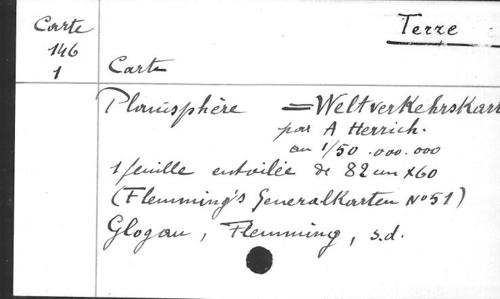 Carte
146
1
Terre
Carte
Planisphère = Weltverkehrskart
par A Herrich.
au 1/50.000.000
1 feuille entoilée de 82 cm x 60
(Flemming's Generalkarten N°51)
Glogau, Flemming, s.d.